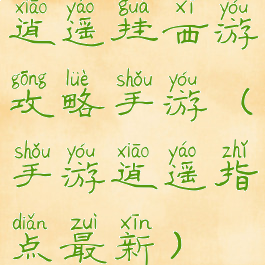 xiāo yáo guà xī yóu
逍遥挂西游
gōng lüè shǒu yóu
攻略手游（
shǒu yóu xiāo yáo zhǐ
手游逍遥指
diǎn zuì xīn
点最新）